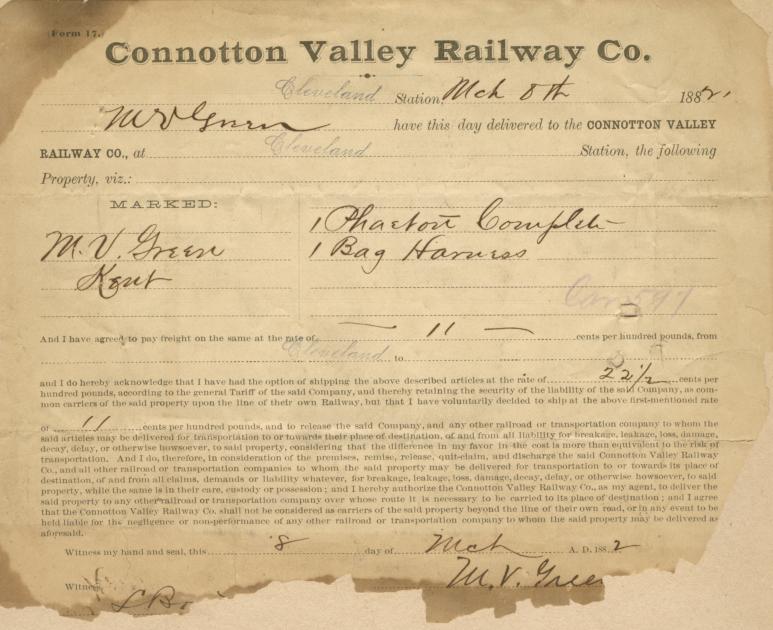 (Form 17.)
Connotton Valley Railway Co.
Cleveland Station, Mch 8th 1882.
M V Green have this day delivered to the CONNOTTON VALLEY
RAILWAY CO., at Cleveland Station, the following
Property, viz.:
MARKED:
1 Phaeton Complete
M. V. Green 1 Bag Harness
Kent
Car 597
And I have agreed to pay freight on the same at the rate of 11 cents per hundred pounds, from
Cleveland to
and I do hereby acknowledge that I have had the option of shipping the above described articles at the rate of 22½ cents per
hundred pounds, according to the general Tariff of the said Company, and thereby retaining the security of the liability of the said Company, as com-
mon carriers of the said property upon the line of their own Railway, but that I have voluntarily decided to ship at the above first-mentioned rate
of 11 cents per hundred pounds, and to release the said Company, and any other railroad or transportation company to whom the
said articles may be delivered for transportation to or towards their place of destination, of and from all liability for breakage, leakage, loss, damage,
decay, delay, or otherwise howsoever, to said property, considering that the difference in my favor in the cost is more than equivalent to the risk of
transportation. And I do, therefore, in consideration of the premises, remise, release, quit-claim, and discharge the said Connotton Valley Railway
Co., and all other railroad or transportation companies to whom the said property may be delivered for transportation to or towards its place of
destination, of and from all claims, demands or liability whatever, for breakage, leakage, loss, damage, decay, delay, or otherwise howsoever, to said
property, while the same is in their care, custody or possession; and I hereby authorize the Connotton Valley Railway Co., as my agent, to deliver the
said property to any other railroad or transportation company over whose route it is necessary to be carried to its place of destination; and I agree
that the Connotton Valley Railway Co. shall not be considered as carriers of the said property beyond the line of their own road, or in any event to be
held liable for the negligence or non-performance of any other railroad or transportation company to whom the said property may be delivered as
aforesaid.
Witness my hand and seal, this 8 day of Mch A. D. 1882
M. V. Green
Witness